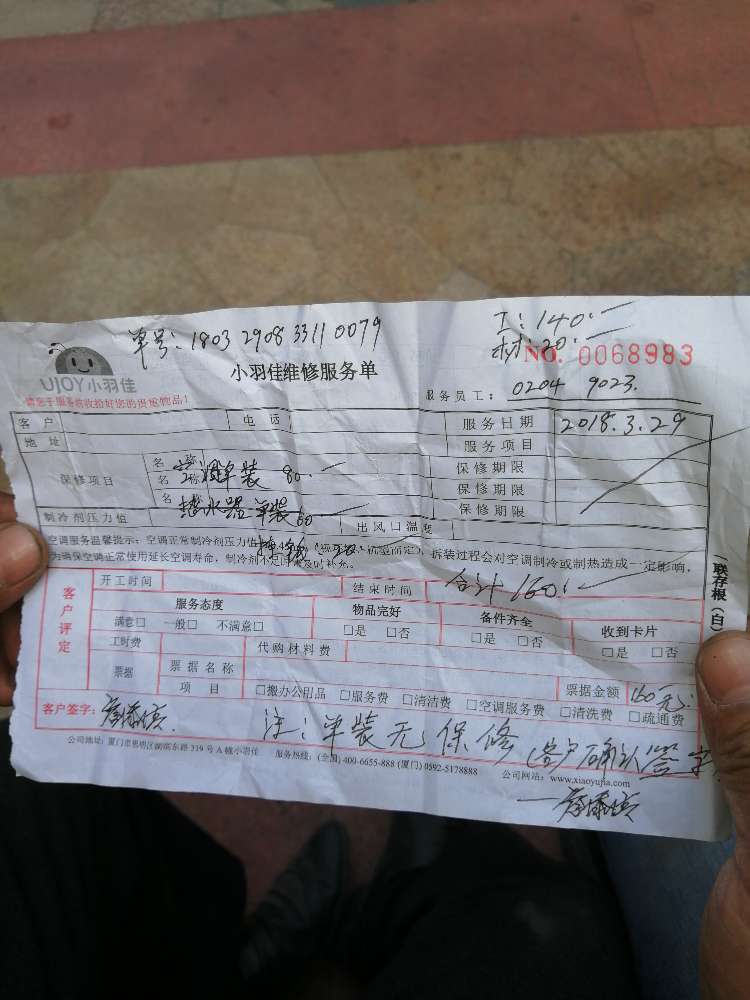 单号:1803 2908 3311 0079
工:140.—
材:20.—
NO. 0068983
UJOY小羽佳
小羽佳维修服务单
服务员工: 0204 9023.
请您于服务前收拾好您的贵重物品!
客户 电话 服务日期 2018.3.29
地址 服务项目
保修项目 名称 空调单装 80.— 保修期限
名称 保修期限
名称 热水器单装60 保修期限
制冷剂压力值 出风口温度
空调服务温馨提示:空调正常制冷剂压力值 拆装过程会对空调制冷或制热造成一定影响,
为确保空调正常使用延长空调寿命,制冷剂不足时需及时补充。
合计160.
一联存根(白)
客户评定
开工时间 结束时间
服务态度 物品完好 备件齐全 收到卡片
满意□ 一般□ 不满意□ □是 □否 □是 □否 □是 □否
工时费 代购材料费
票据 票据名称 票据金额 160元.
项目 □搬办公用品 □服务费 □清洁费 □空调服务费 □清洗费 □疏通费
客户签字:
注:单装无保修(客户确认签字
公司地址:厦门市思明区湖滨东路319号A幢小羽佳 服务热线:(全国)400-6655-888 (厦门)0592-5178888 公司网站:www.xiaoyujia.com